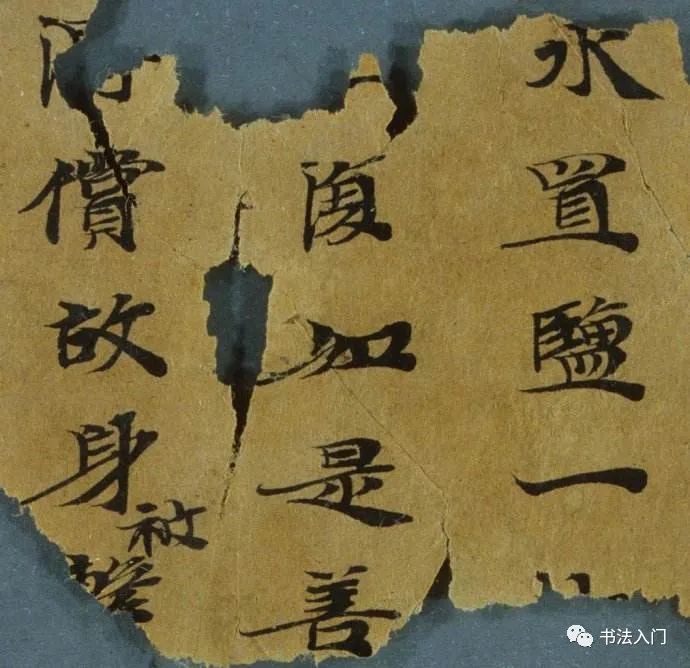 水置鹽一
復如是善
償故身被
书法入门